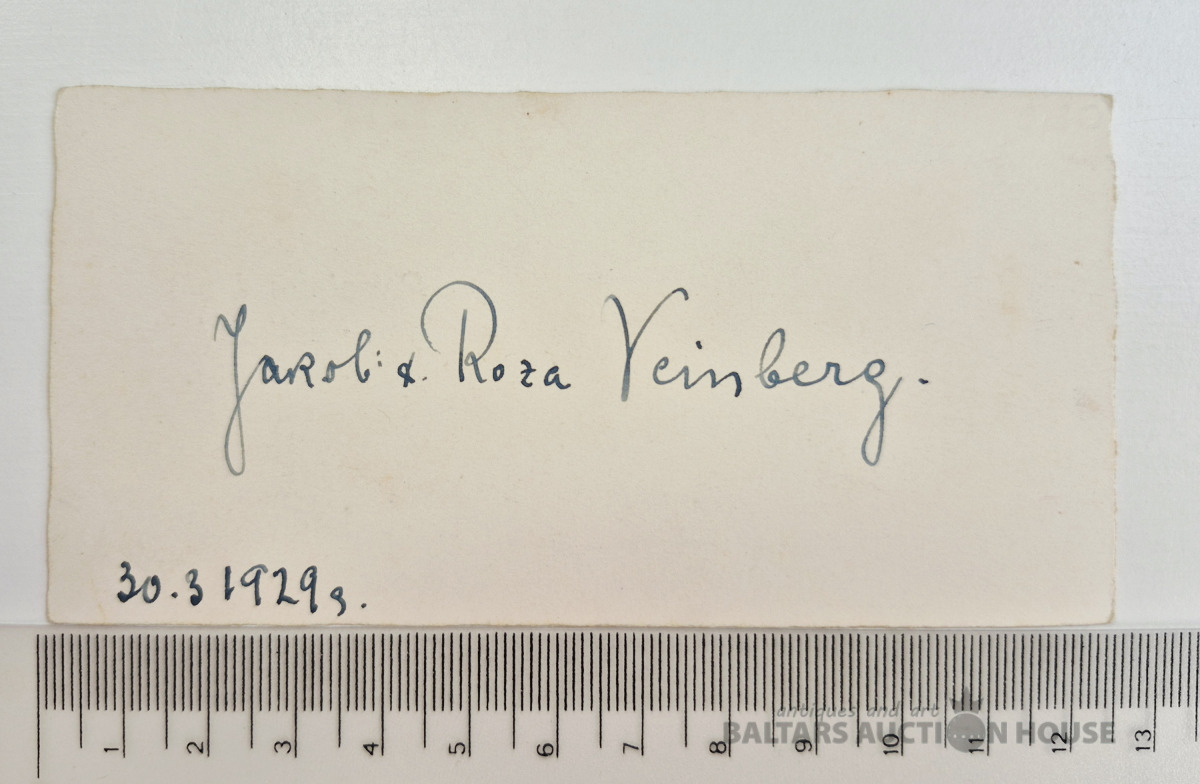 Jakob: &. Roza Veinberg.
30.3 1929 g.
1 2 3 4 5 6 7 8 9 10 11 12 13
antiques and art
BALTARS AUCTION HOUSE